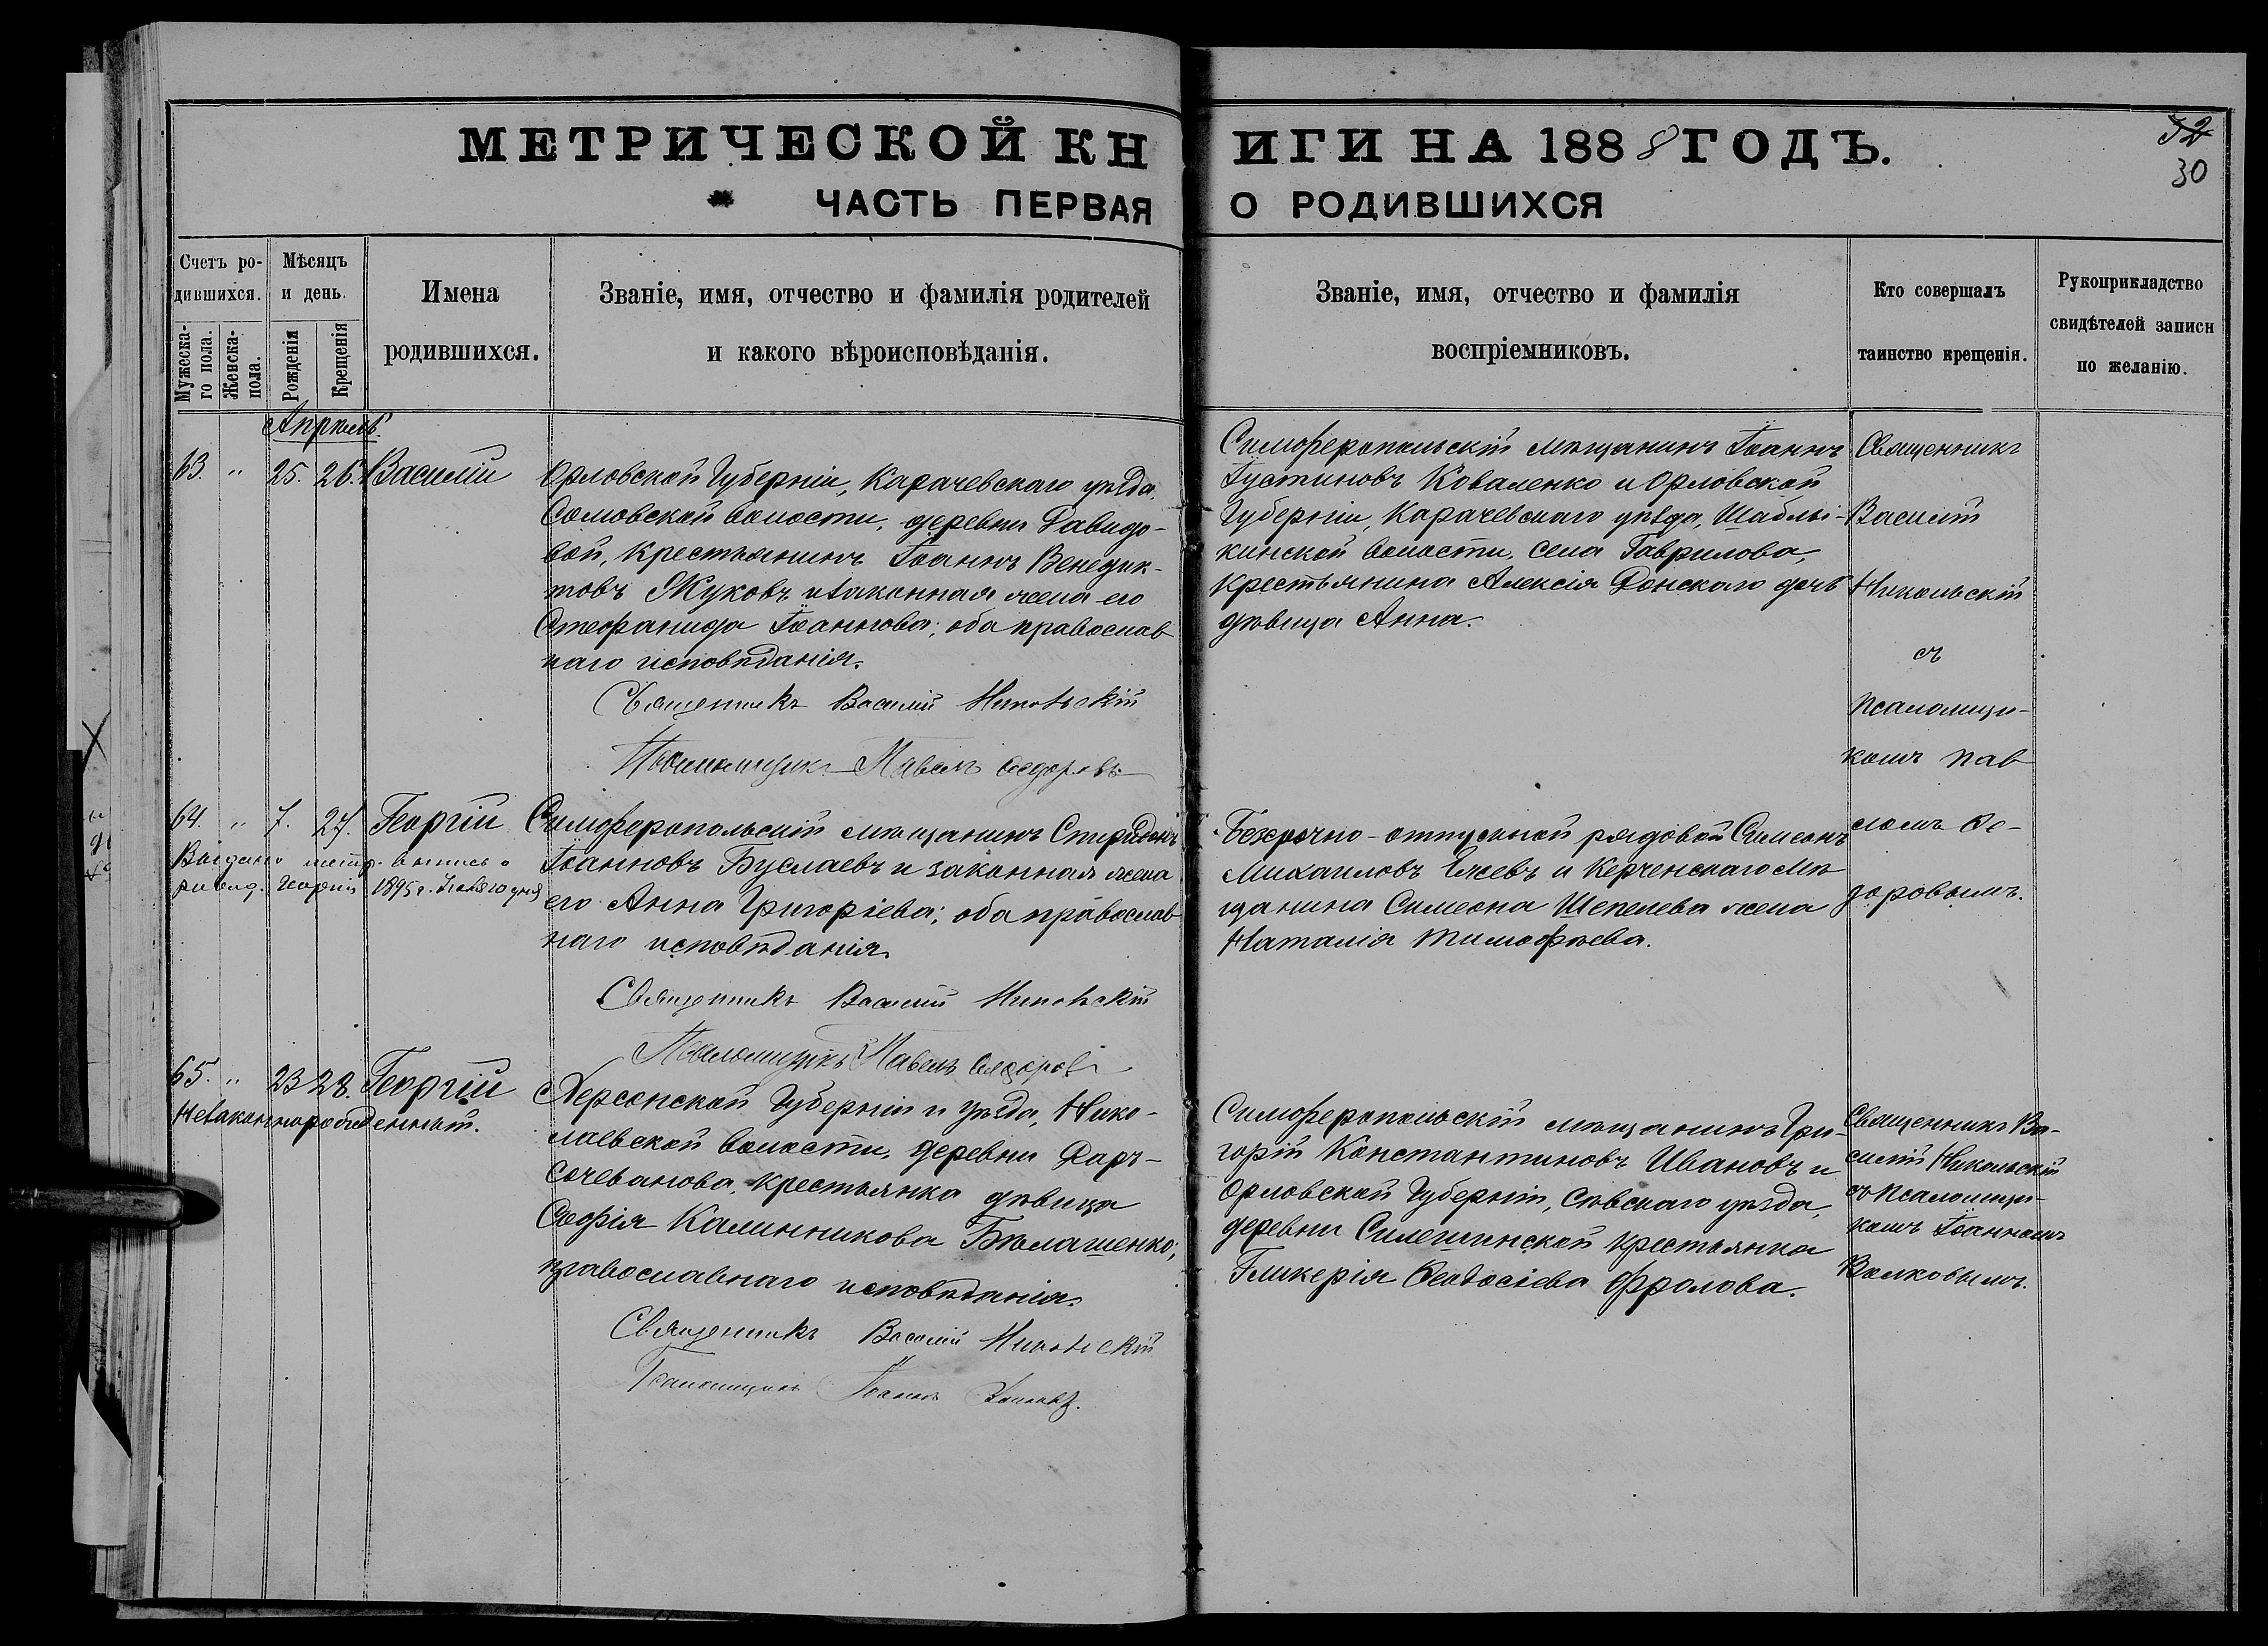 МЕТРИЧЕСКОЙ КНИГИ НА 1888 ГОДЪ.
ЧАСТЬ ПЕРВАЯ О РОДИВШИХСЯ
30
Счетъ ро-
дившихся.
Мужеска-
го пола.
Женска-
пола.
Мѣсяцъ
и день.
Рожденія
Крещенія
Имена
родившихся.
Званіе, имя, отчество и фамилія родителей
и какого вѣроисповѣданія.
Званіе, имя, отчество и фамилія
воспріемниковъ.
Кто совершалъ
таинство крещенія.
Рукоприкладство
свидѣтелей записи
по желанію.
Апрель.
63. " 25. 26. Василій
Орловской Губерніи, Карачевскаго уѣзда,
Сомовской волости, деревни Давидо-
вой, крестьянинъ Іоаннъ Венедик-
товъ Жуковъ и законная жена его
Стефанида Іоаннова; оба православ
наго исповѣданія.
Священникъ Василій Никольскій
Псаломщикъ Павелъ Ѳедоровъ
Симферопольскій мѣщанинъ Іоаннъ
Іустиновъ Коваленко и Орловской
Губерніи, Карачевскаго уѣзда, Шаблы-
кинской волости, села Гаврилова,
крестьянина Алексія Донскаго дочь
дѣвица Анна.
Священникъ
Василій
Никольскій
съ
псаломщи-
комъ Пав
ломъ Ѳе-
доровымъ.
64. " 7. 27. Георгій
Выдана метр. выпись о
рожд. Георгія 1895 г. 10 дня
Симферопольскій мѣщанинъ Спиридонъ
Іоанновъ Буслаевъ и законная жена
его Анна Григоріева; оба православ
наго исповѣданія.
Священникъ Василій Никольскій
Псаломщикъ Павелъ Ѳедоровъ
Безсрочно-отпускной рядовой Симеонъ
Михаиловъ Ежевъ и Керченскаго Мѣ
щанина Симеона Шепелева жена
Наталія Тимофѣева.
65. " 23 28. Георгій
Незаконнорожденный.
Херсонской Губерніи и уѣзда, Нико-
лаевской волости, деревни Даръ-
Сочеванова, крестьянка дѣвица
Софія Калинникова Бѣлашенко;
православнаго исповѣданія.
Священникъ Василій Никольскій
Псаломщикъ Іоаннъ Волковъ.
Симферопольскій мѣщанинъ Гри-
горій Константиновъ Ивановъ и
Орловской Губерніи, Сѣвскаго уѣзда,
деревни Силешинской крестьянка
Гликерія Ѳеодосіева Фролова.
Священникъ Ва-
силій Никольскій
съ псаломщи-
комъ Іоанномъ
Волковымъ.